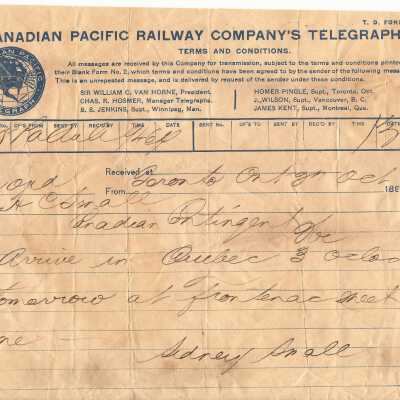 T. D. FOR
ANADIAN PACIFIC RAILWAY COMPANY'S TELEGRAPH
TERMS AND CONDITIONS.
All messages are received by this Company for transmission, subject to the terms and conditions printed
their Blank Form No. 2, which terms and conditions have been agreed to by the sender of the following mess
This is an unrepeated message, and is delivered by request of the sender under these conditions.
SIR WILLIAM C. VAN HORNE, President. HOMER PINGLE, Supt., Toronto, Ont.
CHAS. R. HOSMER, Manager Telegraphs. J. WILSON, Supt., Vancouver, B. C.
B. S. JENKINS, Supt., Winnipeg, Man. JAMES KENT, Supt., Montreal, Que.
CK'S FROM SENT BY REC'D BY TIME SENT No. CK'S TO SENT BY REC'D BY TIME DATE
Received at
From Toronto Ont Oct 189
H C Small
Canadian Contingent
Arrive in Quebec 3 oclo
tomorrow at frontenac meet
me
Sidney Small